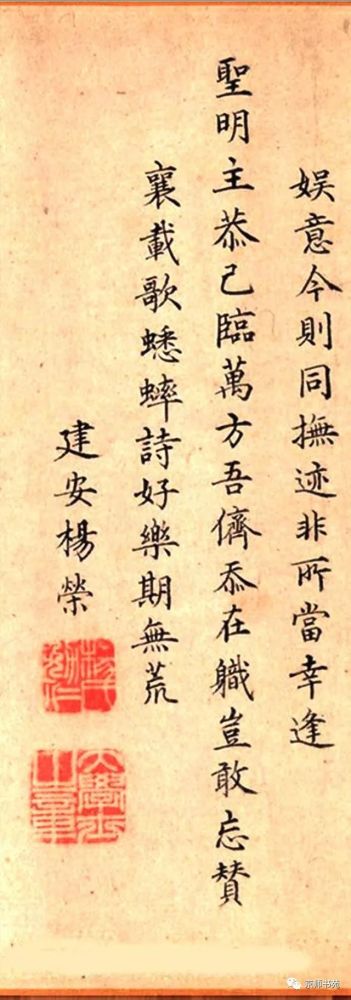 娱意今則同撫迹非所當幸逢
聖明主恭己臨萬方吾儕忝在職豈敢忘贊
襄載歌蟋蟀詩好樂期無荒
建安楊榮